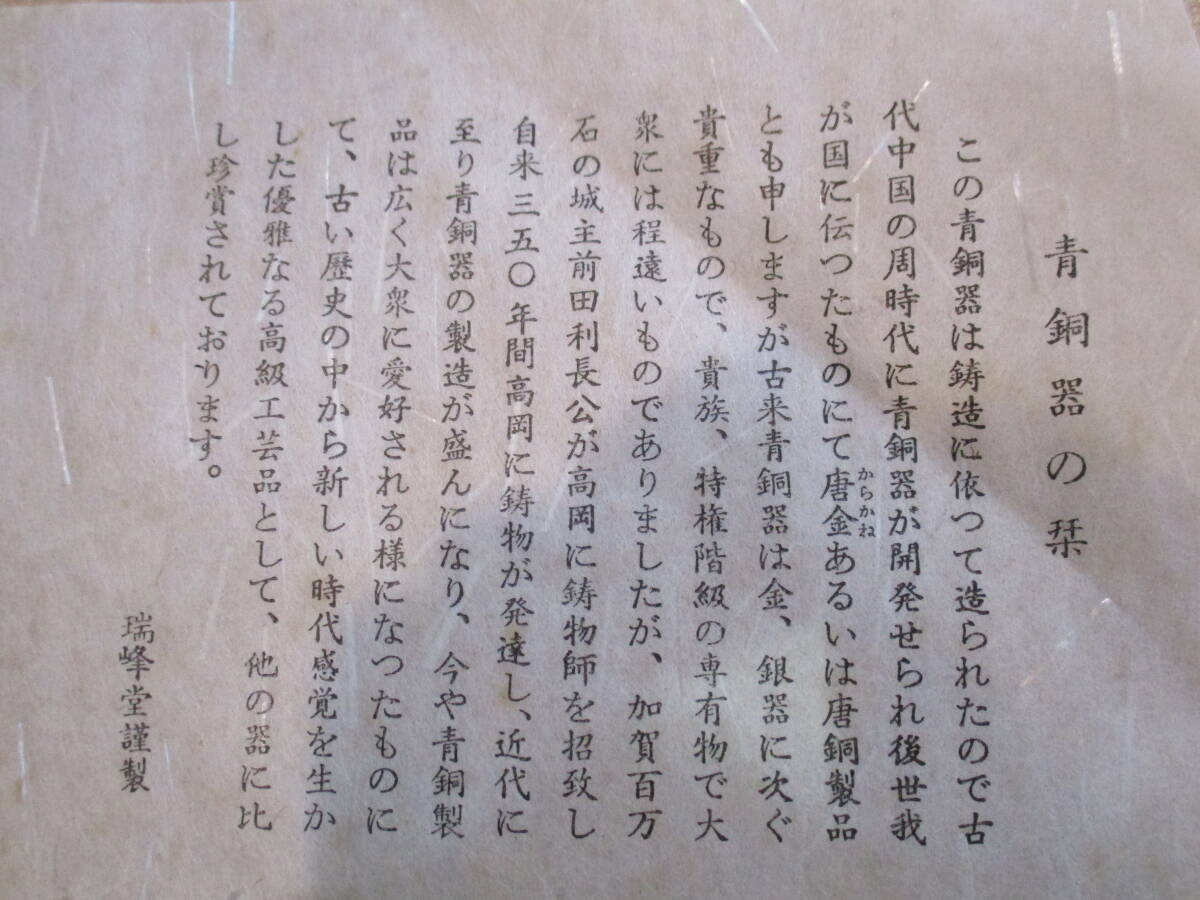 青銅器の栞
この青銅器は鋳造に依つて造られたので古
代中国の周時代に青銅器が開発せられ後世我
が国に伝つたものにて唐金あるいは唐銅製品
からかね
とも申しますが古来青銅器は金、銀器に次ぐ
貴重なもので、貴族、特権階級の専有物で大
衆には程遠いものでありましたが、加賀百万
石の城主前田利長公が高岡に鋳物師を招致し
自来三五〇年間高岡に鋳物が発達し、近代に
至り青銅器の製造が盛んになり、今や青銅製
品は広く大衆に愛好される様になつたものに
て、古い歴史の中から新しい時代感覚を生か
した優雅なる高級工芸品として、他の器に比
し珍賞されております。
瑞峰堂謹製